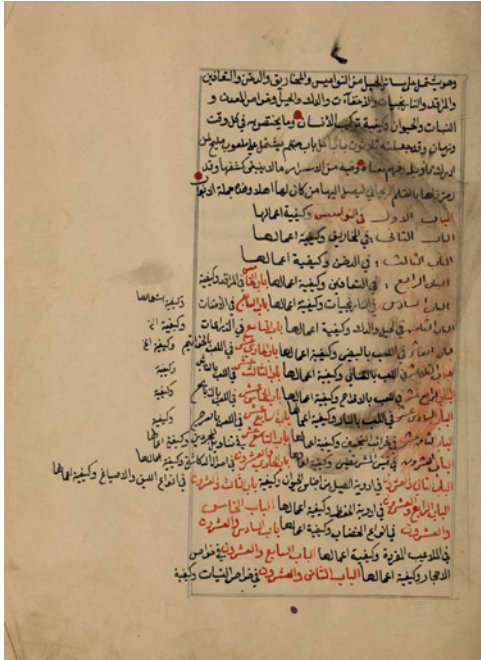 وهو يشتمل على سائر الحيل من النواميس والمخاريق والدخن والتعافين
والمراقد والنارنجيات والاخفآت والدك والحيل وخواص المعدن و
النبات والحيوان وكيفية تركيب الانسان وما يختص به في كل وقت
وزمان وقد جعلته ثلاثون بابًا كل باب منهم يشتمل على ملعوب مليح لمن
ادركه بتأويله وفهم معناه وفيه من الاسرار ما لا ينبغي كشفها وقد
رمزناها بالقلم الريحاني ليصل اليها من كان لها اهلا وهذه جملة الابواب
الباب الاول في النواميس وكيفية اعمالها
الباب الثاني في المخاريق وكيفية اعمالها
الباب الثالث في الدخن وكيفية اعمالها
الباب الرابع في التعافين وكيفية اعمالها باب الخامس في المراقد وكيفية
الباب السادس في النارنجيات وكيفية اعمالها باب السابع في الاخفات وكيفية اعمالها
الباب الثامن في الحيل والدك وكيفية اعمالها باب التاسع في وكيفية
باب العاشر في اللعب بالبيض وكيفية اعمالها باب الحادي عشر في اللعب وكيفية
باب الثاني عشر في اللعب بالقناني وكيفية اعمالها باب الثالث عشر في اللعب وكيفية
الباب الرابع عشر في اللعب بالاقداح وكيفية اعمالها باب الخامس عشر في اللعب وكيفية
الباب السادس عشر في اللعب بالنار وكيفية اعمالها باب السابع عشر في اللعب وكيفية
الباب الثامن عشر في وكيفية اعمالها باب التاسع عشر في وكيفية اعمالها
الباب العشرون في وكيفية اعمالها باب الحادي والعشرون في وكيفية اعمالها
الباب الثاني والعشرون في ادوية الفيل من اجناس الحيوان وكيفية باب الثالث والعشرون في انواع الليق والاصباغ وكيفية اعمالها
الباب الرابع والعشرون في ادوية الحفظ وكيفية اعمالها الباب الخامس
والعشرون في انواع الخضاب وكيفية اعمالها باب السادس والعشرون
في الملاعيب المفردة وكيفية اعمالها الباب السابع والعشرون في خواص
الاحجار وكيفية اعمالها الباب الثامن والعشرون في خواص النبات وكيفية